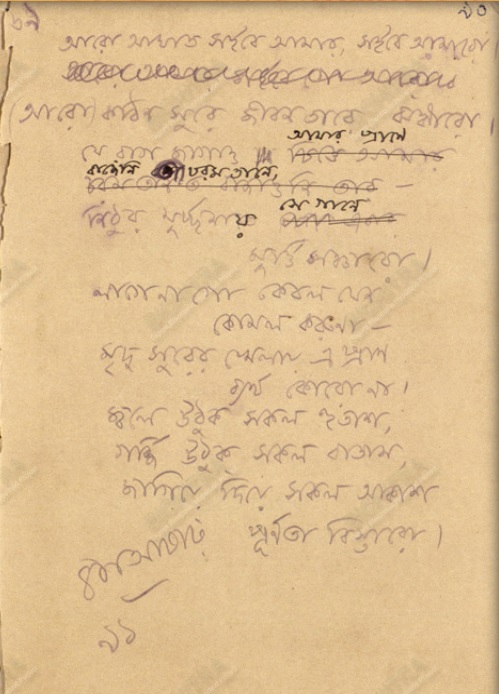 ৯০
আরো আঘাত সইবে আমার, সইবে আমারো
(আরো) কঠিন সুরে জীবন তারে ঝঙ্কারো।
যে রাগ জাগাও আমার প্রাণে
বাজেনি তা চরম তানে,
নিঠুর মূর্চ্ছনায় সে গানে
মূর্ত্তি সঞ্চারো।
লাগে না গো কেবল যেন
কোমল করুণা –
মৃদু সুরের খেলায় এ প্রাণ
ব্যর্থ কোরো না।
জ্বলে উঠুক সকল হুতাশ,
গর্জ্জি উঠুক সকল বাতাস,
জাগিয়ে দিয়ে সকল আকাশ
পূর্ণতা বিস্তারো।
৪ঠা আষাঢ়
৯১